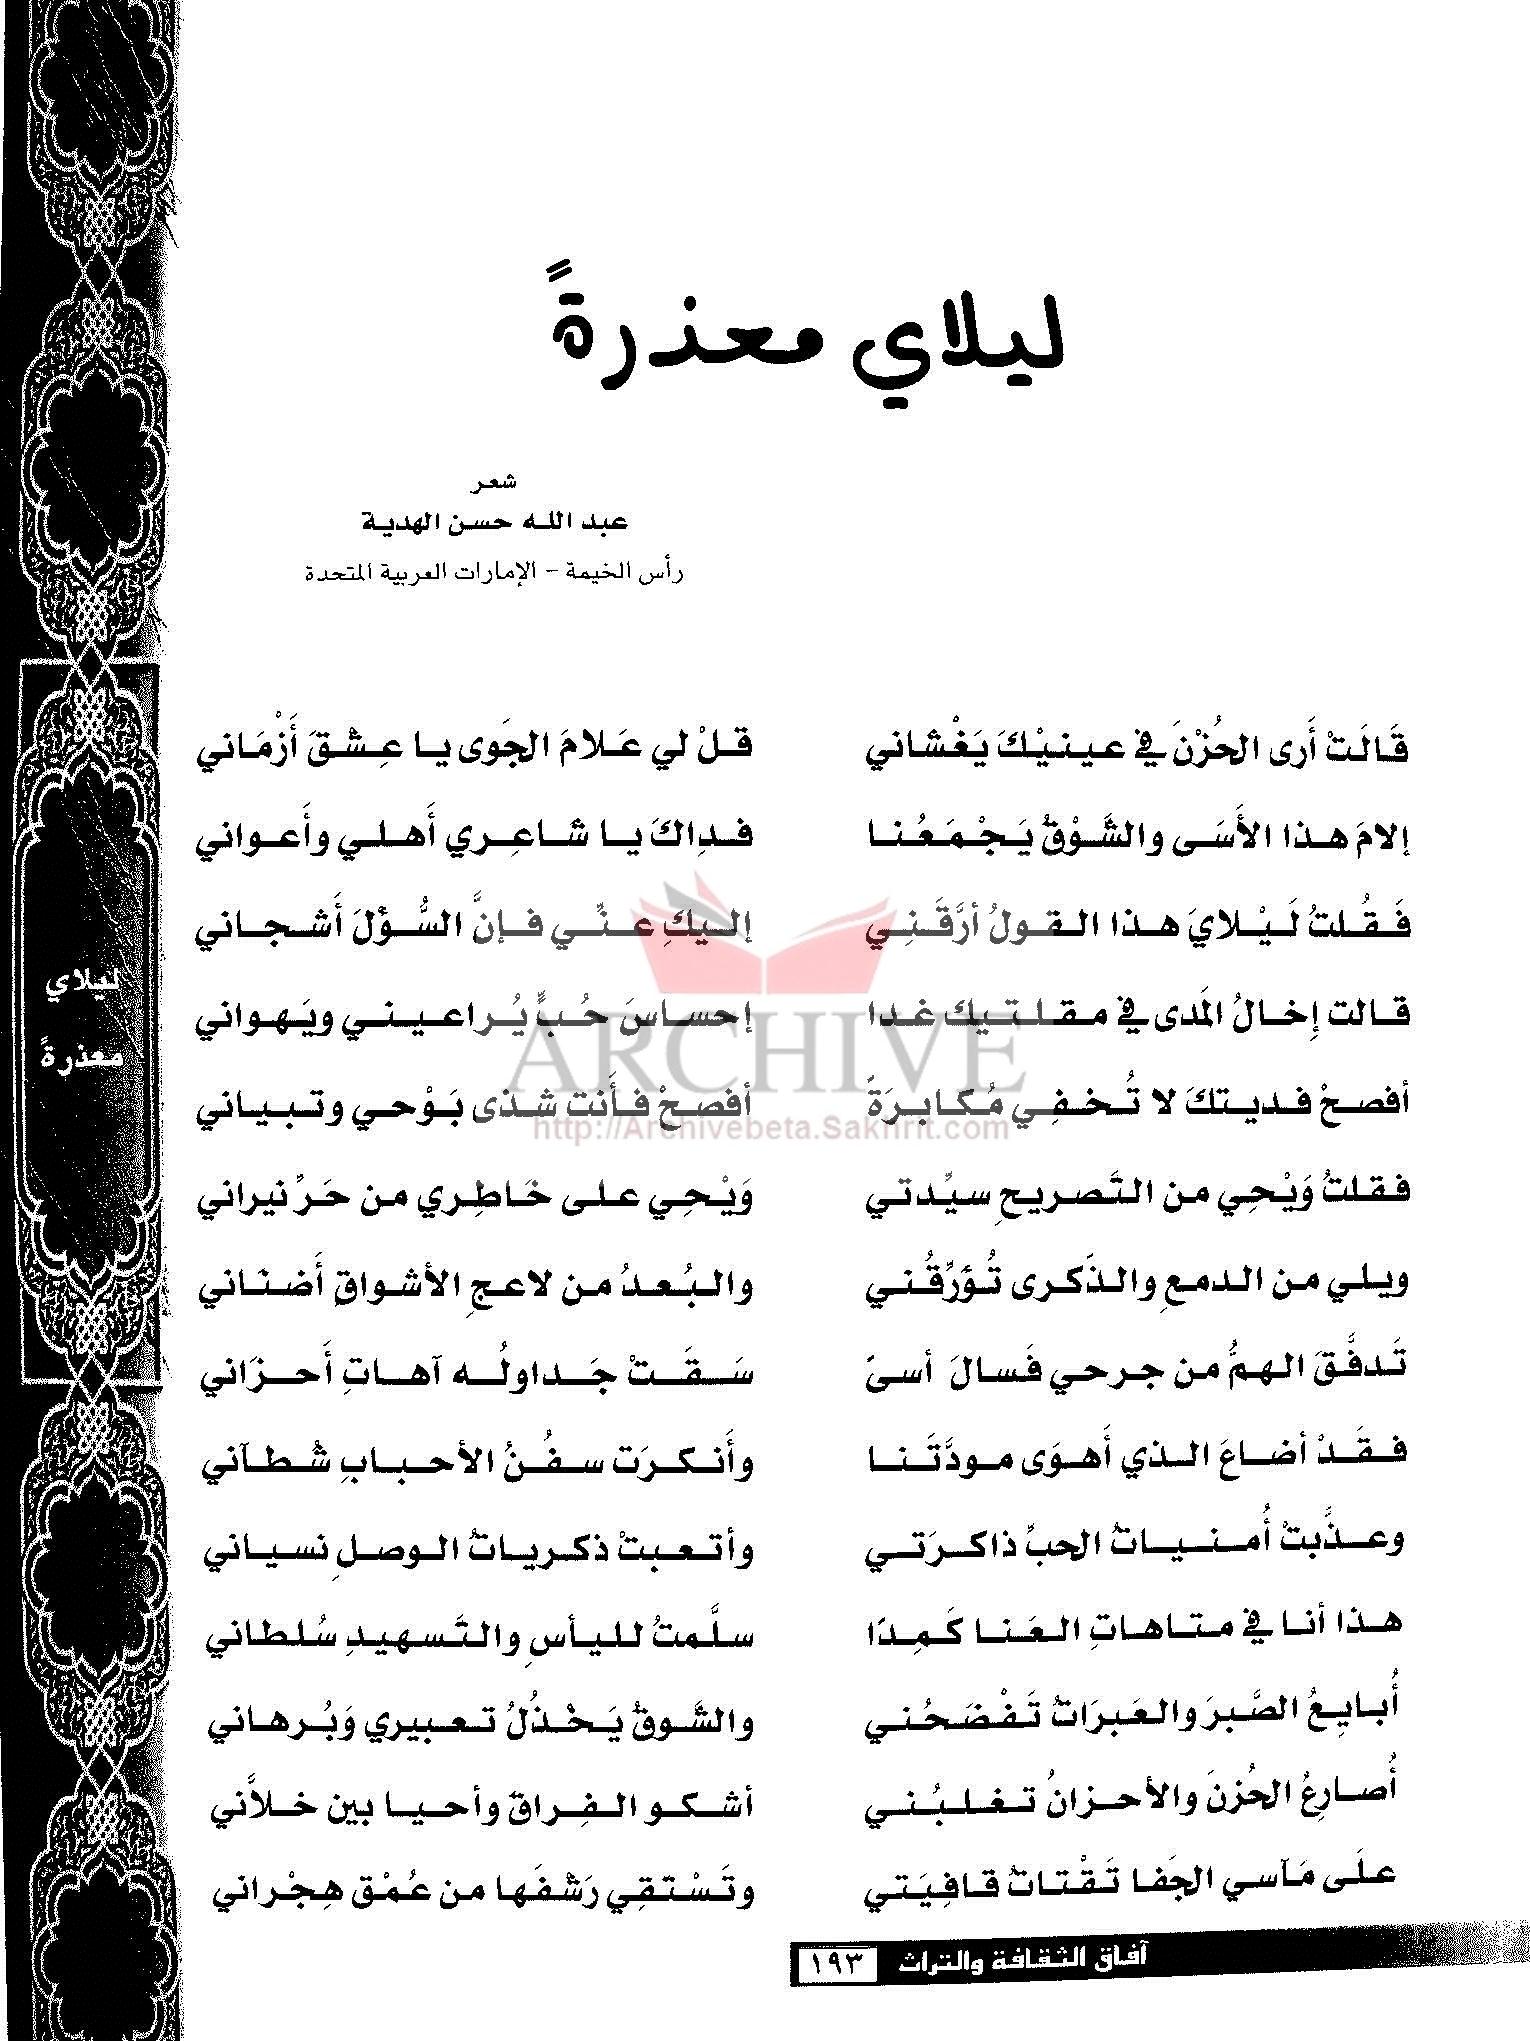 ليلاي معذرةً
شعر
عبد الله حسن الهدية
رأس الخيمة - الإمارات العربية المتحدة
قَالَتْ أَرى الحُزْنَ في عينيْكَ يَغْشاني قلْ لي عَلامَ الجَوى يا عِشْقَ أَزْمَاني
إلامَ هذا الأَسَى والشَّوْقُ يَجْمَعُنا فداكَ يا شاعِري أَهلي وأَعواني
فَقُلتُ لَيْلايَ هذا القولُ أرَّقَنِي إليكِ عنِّي فإنَّ السُّؤْلَ أَشجاني
قالت إِخالُ المَدى في مقلتيك غدا إحساسَ حُبٍّ يُراعيني ويَهواني
أفصحْ فديتكَ لا تُخفِي مُكابرَةً أفصحْ فأَنت شذى بَوْحي وتبياني
فقلتُ وَيْحِي من التَّصريحِ سيِّدتي وَيْحِي على خَاطِري من حَرِّ نيراني
ويلي من الدمعِ والذَكرى تُؤرِّقُني والبُعدُ من لاعجِ الأشواقِ أَضنَاني
تَدفَّقَ الهمُّ من جرحي فَسالَ أسىً سَقَتْ جَداولُه آهاتِ أَحزَاني
فقَدْ أضاعَ الذي أَهوَى مودَّتَنا وأَنكرَت سفُنُ الأحبابِ شُطآني
وعذَّبتْ أُمنياتُ الحبِّ ذاكرَتي وأتعبتْ ذكرياتُ الوصلِ نسياني
هذا أنا في متاهاتِ العَنا كَمِدًا سلَّمتُ لليأسِ والتَّسهيدِ سُلطاني
أُبايِعُ الصَّبرَ والعَبرَاتُ تَفْضَحُني والشَّوقُ يَخْذُلُ تعبيري وَبُرهاني
أُصارِعُ الحُزنَ والأحزانُ تغلبُني أشكو الفِراقَ وأحيا بين خلاَّني
علَى مَآسي الجَفا تَقْتاتُ قافِيَتي وتَسْتقِي رَشْفَها من عُمْق هِجْراني
ليلاي
معذرةً
آفاق الثقافة والتراث ١٩٣
ARCHIVE
http://Archivebeta.Sakhrit.com